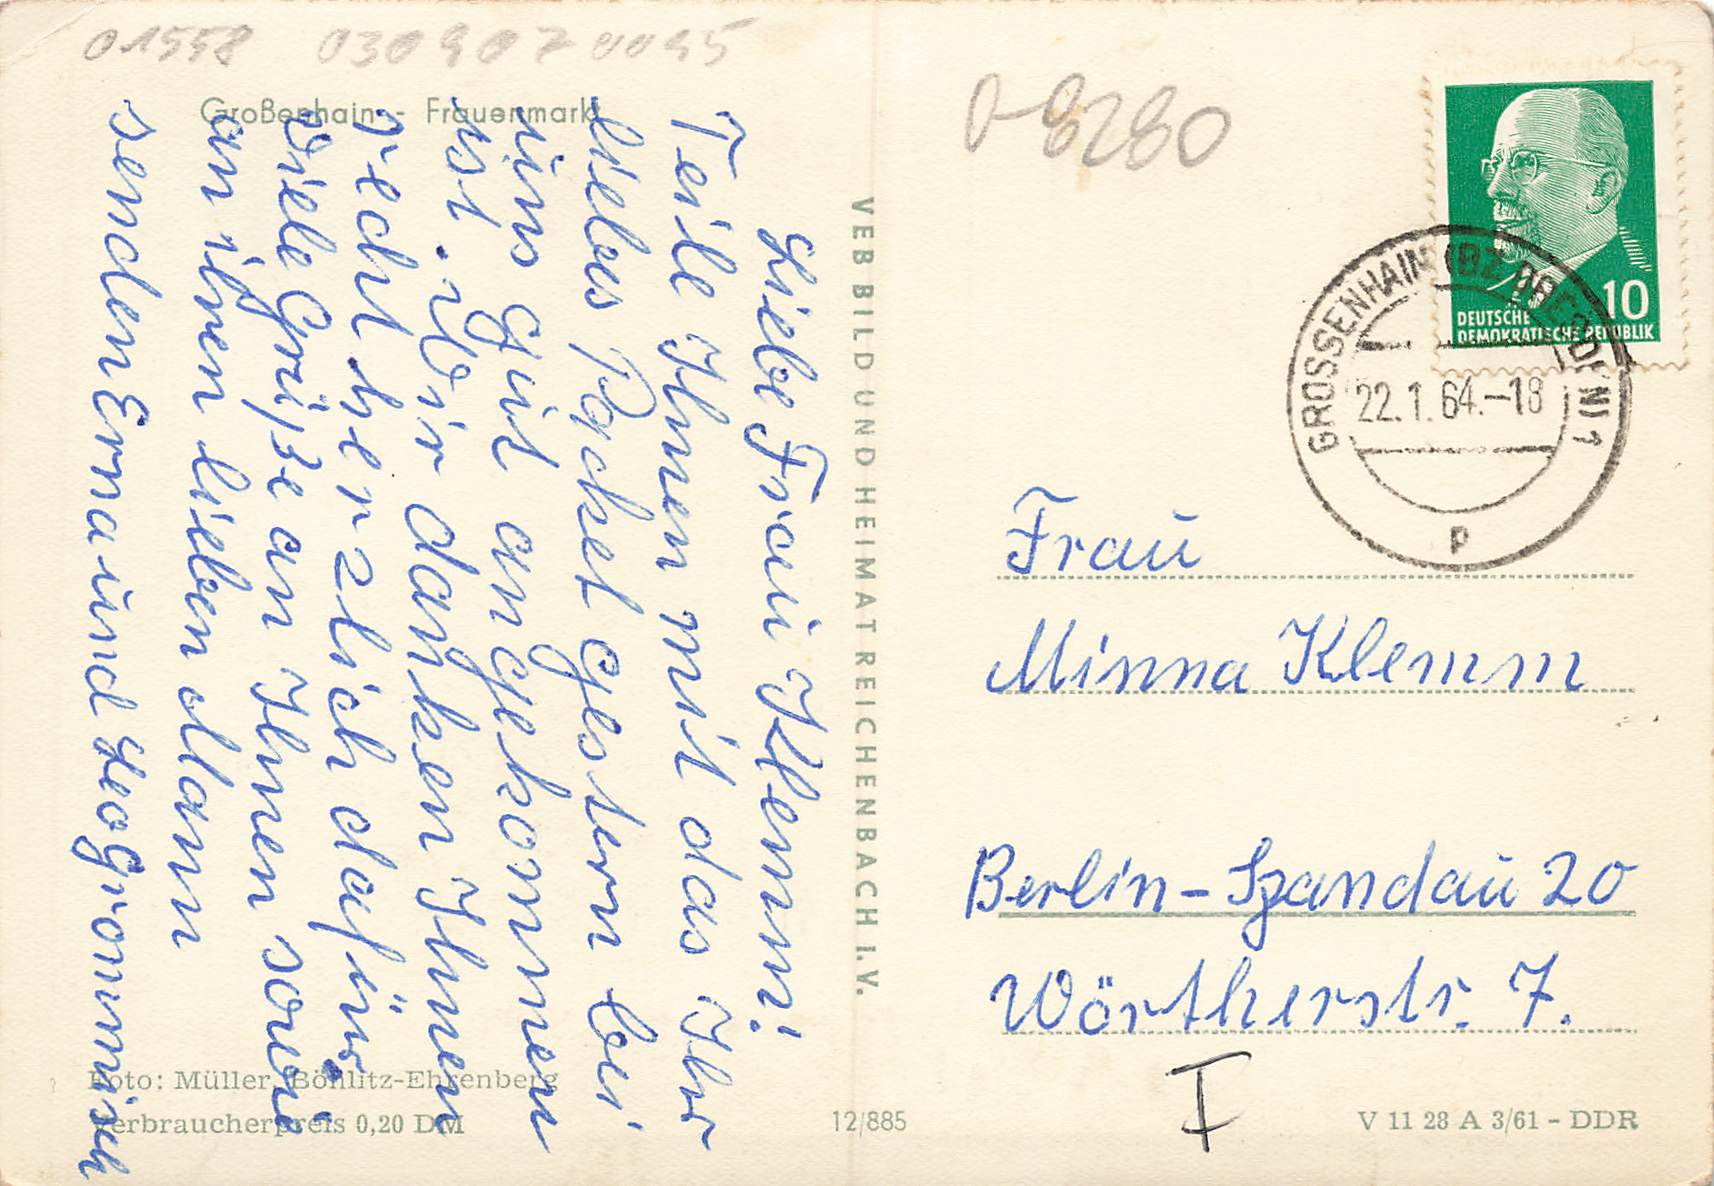 01558 0309070095
Großenhain - Frauenmarkt
Liebe Frau Klemm!
Teile Ihnen mit das Ihr
liebes Packet gestern bei
uns gut angekommen
ist. Wir danken Ihnen
recht herzlich dafür.
Viele Grüße an Ihnen sowie
an ihren lieben Mann
senden Erna und Leo
Foto: Müller, Böhlitz-Ehrenberg
Verbraucherpreis 0,20 DM
VEB BILD UND HEIMAT REICHENBACH I. V.
12/885
0-8280
10
DEUTSCHE
DEMOKRATISCHE REPUBLIK
GROSSENHAIN (BZ DRESDEN) 1
22.1.64.-18
p
Frau
Minna Klemm
Berlin-Spandau 20
Wörtherstr. 7.
I
V 11 28 A 3/61 - DDR